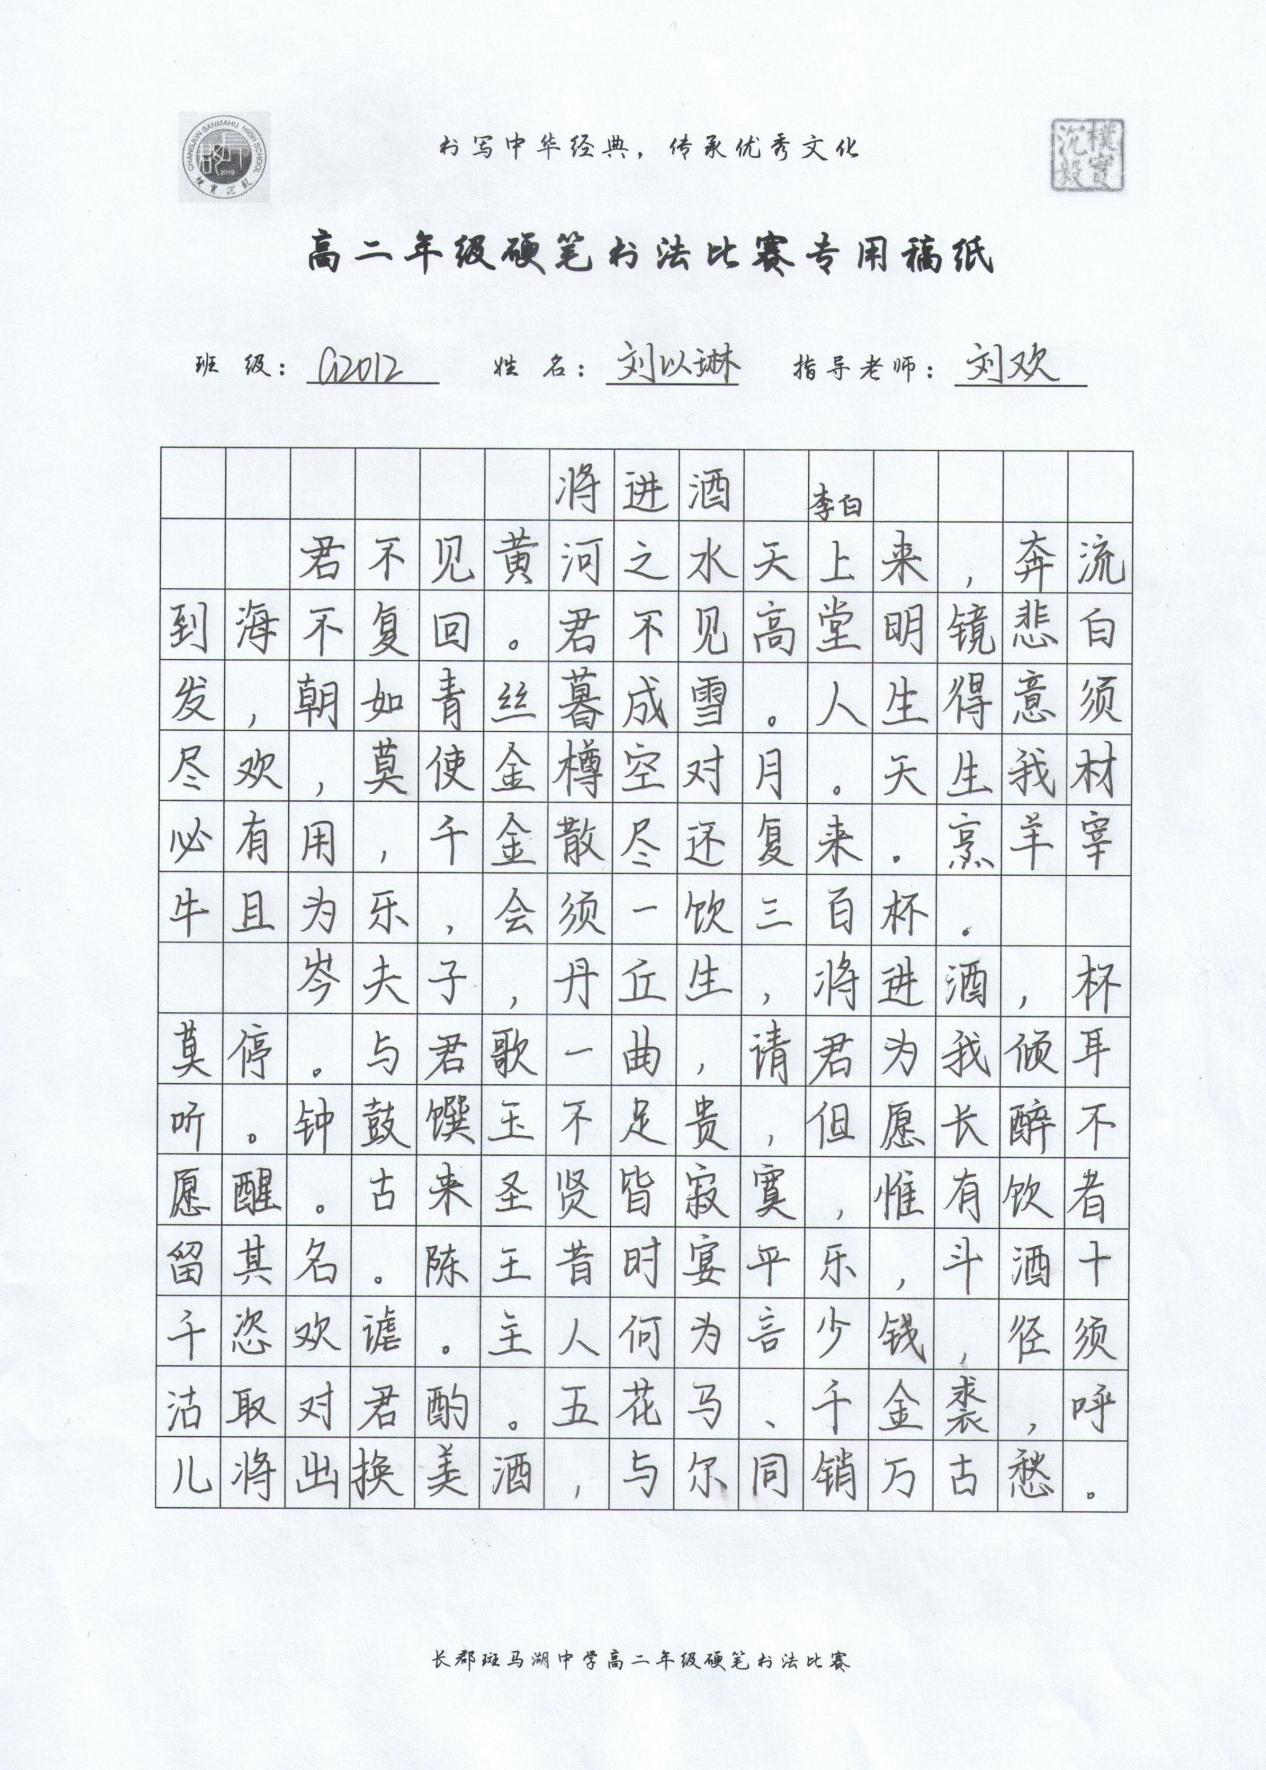 CHANGJUN BANMAHU HIGH SCHOOL
2018
樸實沉毅
书写中华经典，传承优秀文化
樸實沉毅
高二年级硬笔书法比赛专用稿纸
班 级： G2012 姓 名： 刘以琳 指导老师： 刘欢
将进酒 李白
君不见黄河之水天上来，奔流
到海不复回。君不见高堂明镜悲白
发，朝如青丝暮成雪。人生得意须
尽欢，莫使金樽空对月。天生我材
必有用，千金散尽还复来。烹羊宰
牛且为乐，会须一饮三百杯。
岑夫子，丹丘生，将进酒，杯
莫停。与君歌一曲，请君为我倾耳
听。钟鼓馔玉不足贵，但愿长醉不
愿醒。古来圣贤皆寂寞，惟有饮者
留其名。陈王昔时宴平乐，斗酒十
千恣欢谑。主人何为言少钱，径须
沽取对君酌。五花马、千金裘，呼
儿将出换美酒，与尔同销万古愁。
长郡斑马湖中学高二年级硬笔书法比赛